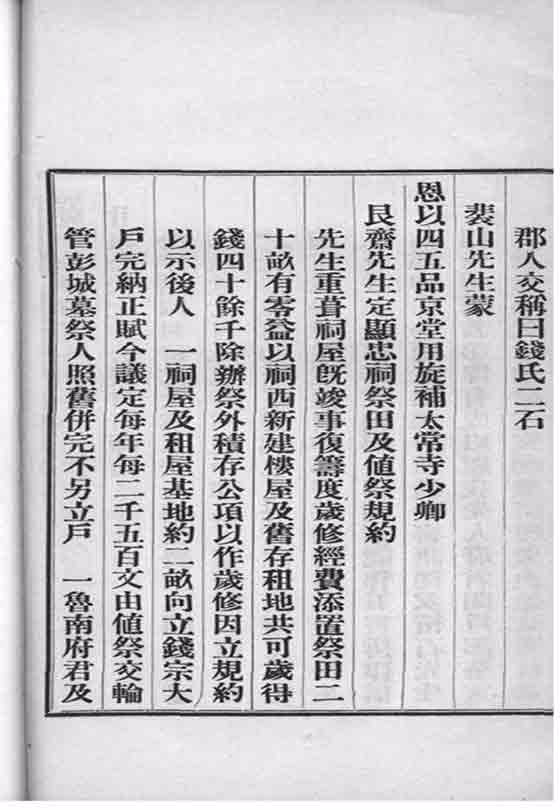 郡人交稱曰錢氏二石
裴山先生蒙
恩以四五品京堂用旋補太常寺少卿
艮齋先生定顯忠祠祭田及値祭規約
先生重葺祠屋旣竣事復籌度歲修經費添置祭田二
十畝有零益以祠西新建樓屋及舊存租地共可歲得
錢四十餘千除辦祭外積存公項以作歲修因立規約
以示後人　一祠屋及租屋基地約二畝向立錢宗大
戶完納正賦今議定每年每二千五百文由値祭交輪
管彭城墓祭人照舊併完不另立戶　一魯南府君及